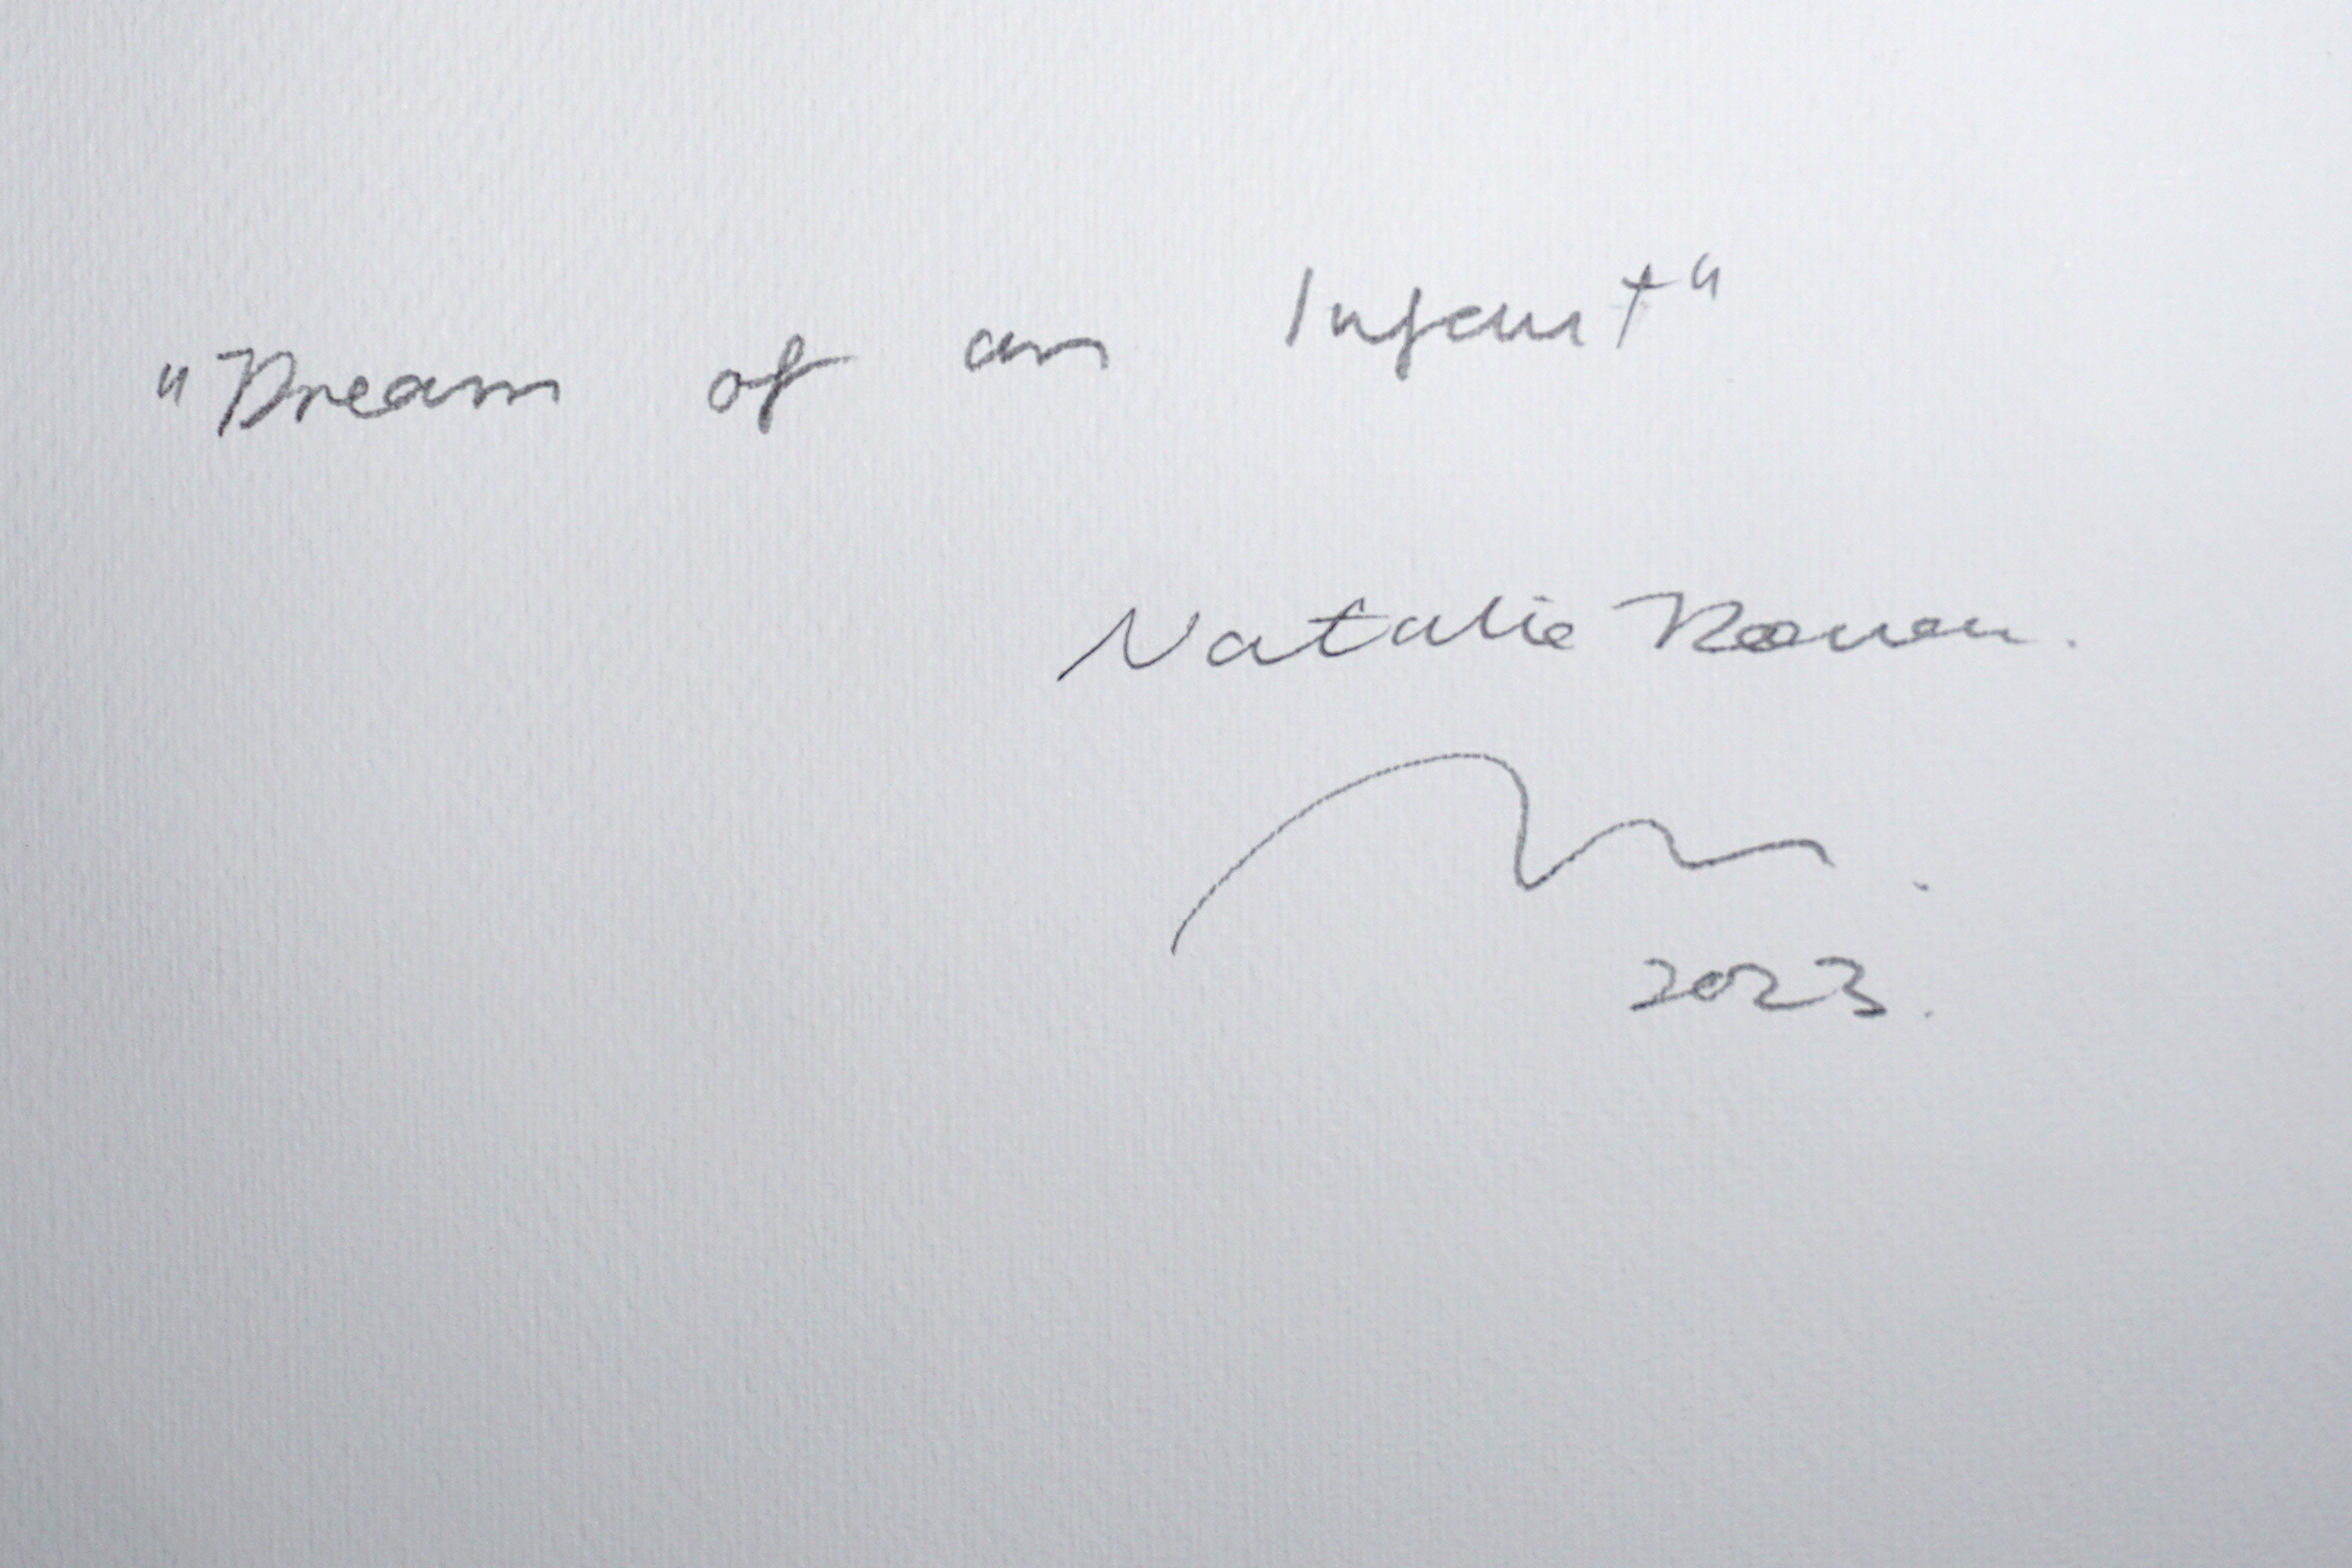 "Dream of an Infant"
Natalie
2023.